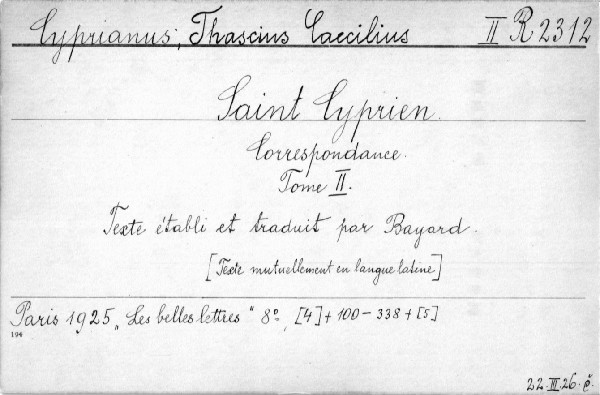 Cyprianus, Thascius Caecilius II R 2312
Saint Cyprien.
Correspondance.
Tome II.
Texte établi et traduit par Bayard.
[Texte mutuellement en langue latine]
Paris 1925 „Les belles lettres" 8°, [4] + 100 - 338 + [5]
194
22. III. 26. č.